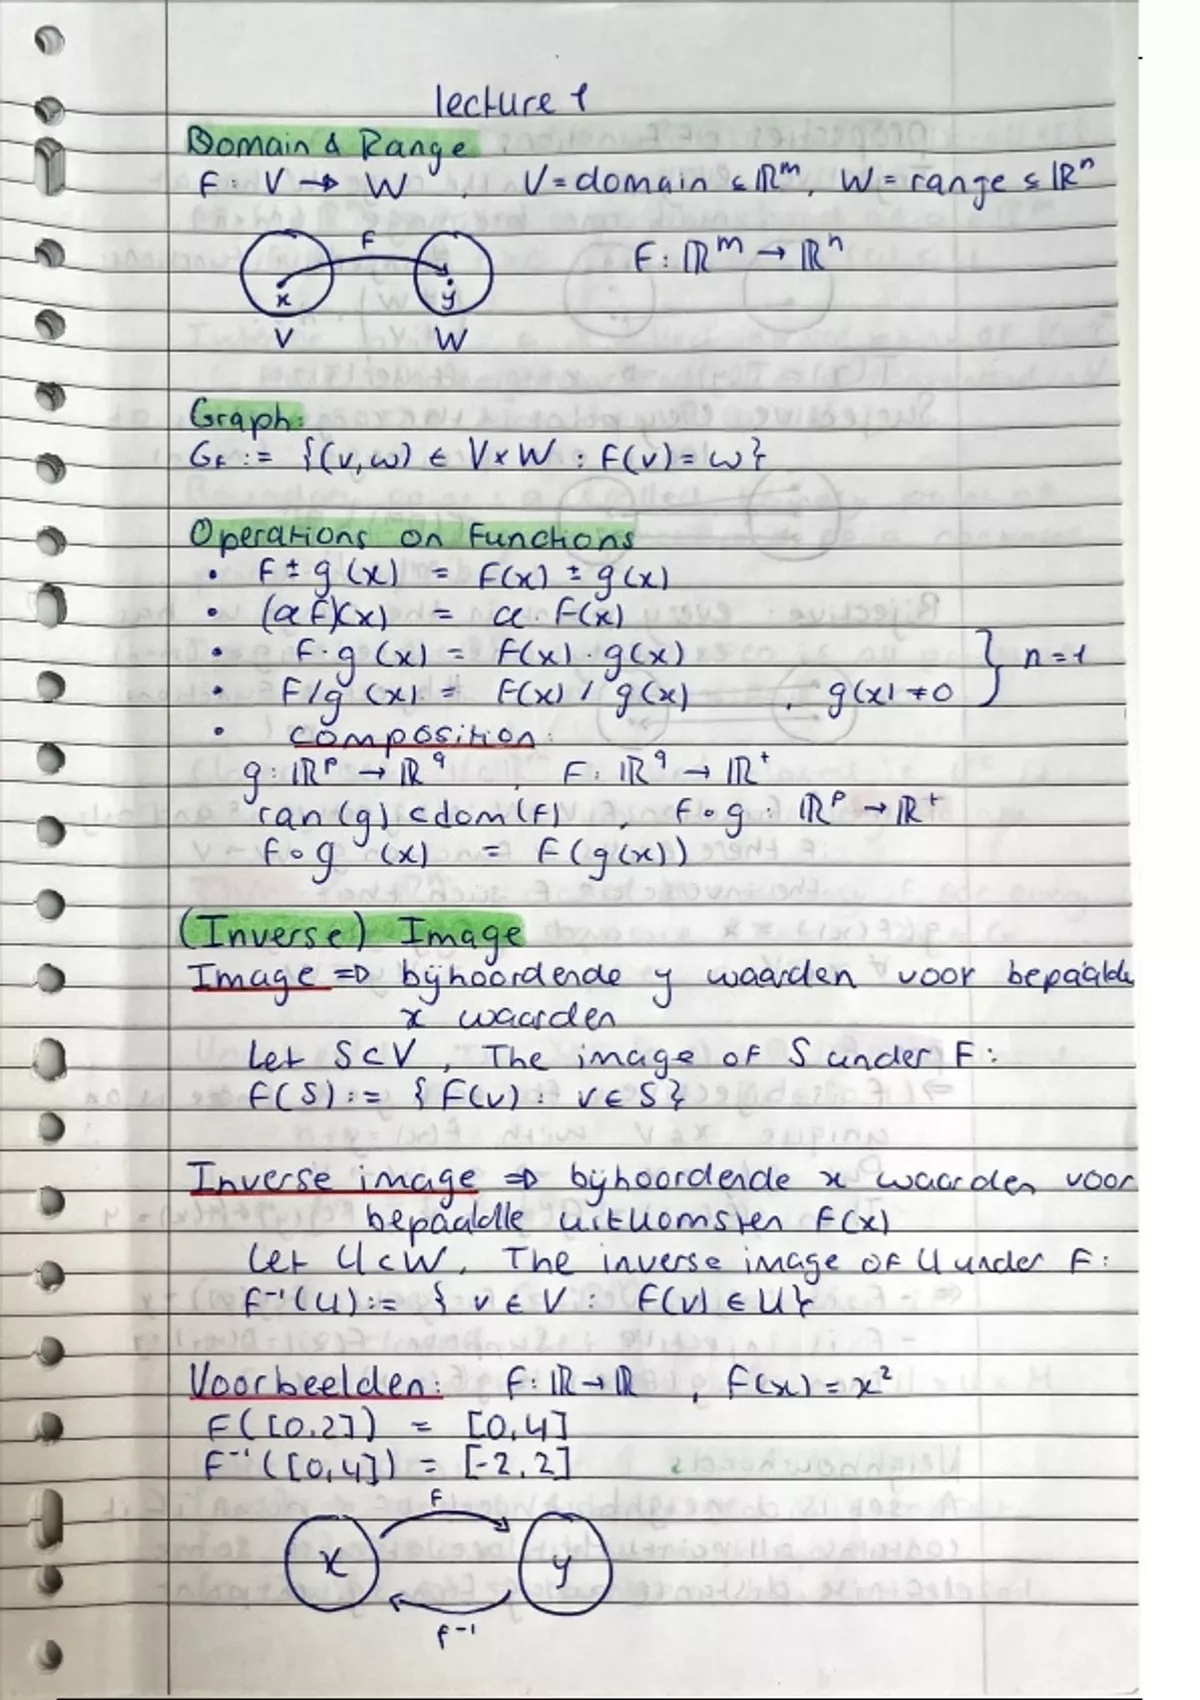 lecture 1
Domain & Range
F: V → W, V = domain ⊆ ℝᵐ, W = range ⊆ ℝⁿ
F
F: ℝᵐ → ℝⁿ
x y
V W
Graph:
G_F := {(v,w) ∈ V×W : F(v) = w}
Operations on Functions
• F ± g (x) = F(x) ± g(x)
• (aF)(x) = a · F(x)
• F·g (x) = F(x) · g(x)
n = 1
• F/g (x) = F(x) / g(x), g(x) ≠ 0
• composition:
g: ℝᵖ → ℝ^q, F: ℝ^q → ℝ^t
ran(g) ⊂ dom(F), F∘g : ℝᵖ → ℝ^t
F∘g (x) = F(g(x))
(Inverse) Image
Image ⇒ bijhoordende y waarden voor bepaalde
x waarden
Let S⊂V, The image of S under F:
F(S) := {F(v) : v ∈ S}
Inverse image ⇒ bijhoordende x waarden voor
bepaalde uitkomsten F(x)
Let U⊂W, The inverse image of U under F:
F⁻¹(U) := { v ∈ V : F(v) ∈ U}
Voorbeelden: F: ℝ → ℝ, F(x) = x²
F([0,2]) = [0,4]
F⁻¹([0,4]) = [-2,2]
F
x y
F⁻¹